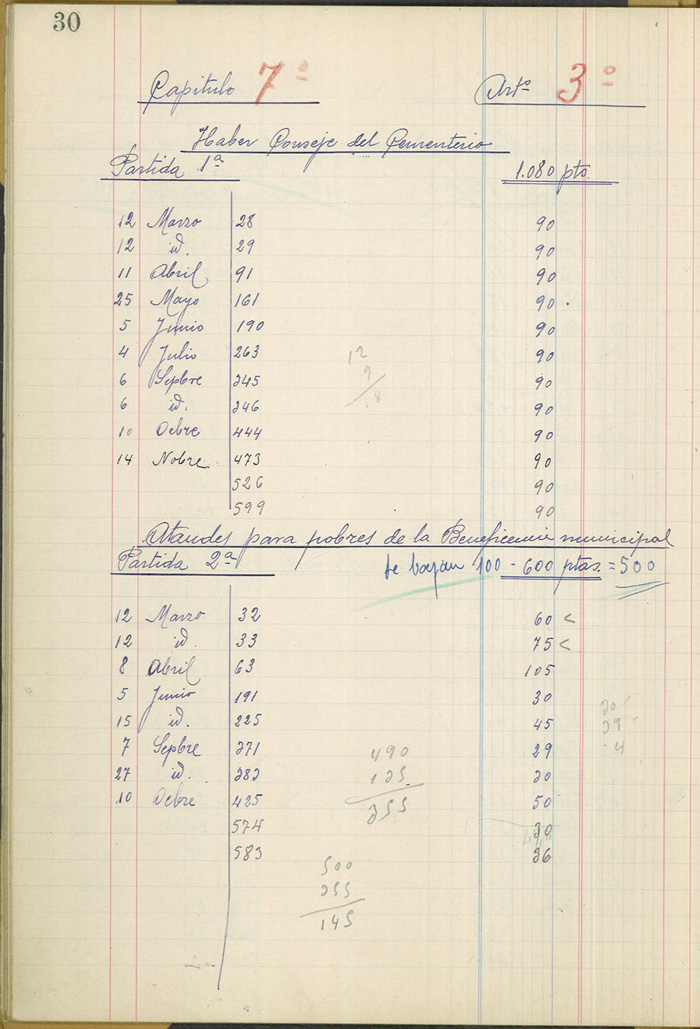 30
Capitulo 7º Artº 3º
Haber Conseje del Cementerio
Partida 1ª 1.080 pts.
12 Marzo 28 90
12 id. 29 90
11 Abril 91 90
25 Mayo 161 90.
5 Junio 190 90
4 Julio 263 90
6 Sepbre 345 90
6 id. 346 90
10 Ocbre 444 90
14 Nobre. 473 90
526 90
599 90
12
9
8
Ataudes para pobres de la Beneficencia municipal
Partida 2ª Se bajan 100 - 600 ptas. = 500
12 Marzo 32 60 <
12 id. 33 75 <
8 Abril 63 105
5 Junio 191 30
15 id. 225 45
7 Sepbre 371 29
27 id. 383 30
10 Ocbre 425 50
574 30
583 36
30
29
4
490
135
355
500
355
145